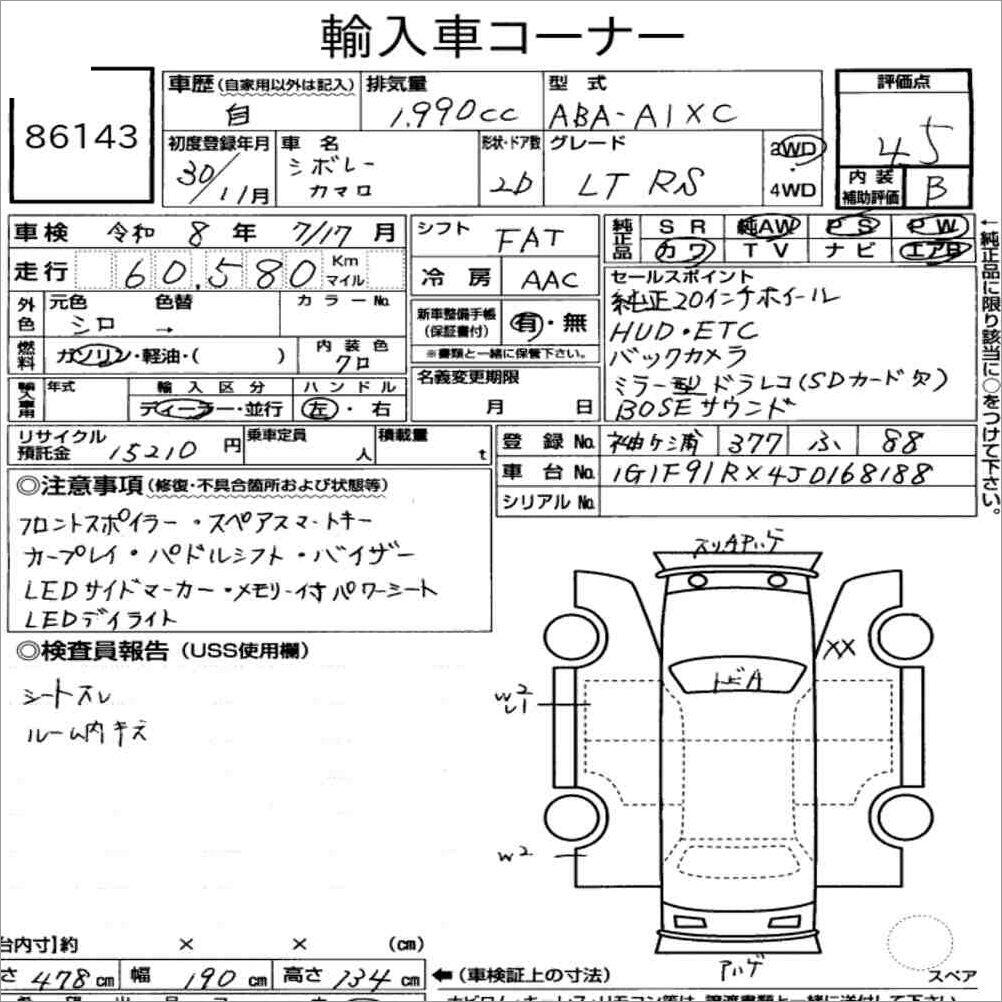 輸入車コーナー
86143
車歴(自家用以外は記入) 排気量 型式 評価点
自 1,990cc ABA-A1XC 4.5
初度登録年月 車名 形状・ドア数 グレード 2WD
30/11月 シボレー カマロ 2D LT RS 4WD
内装補助評価 B
車検 令和 8年 7/17月 シフト FAT 純正品 SR 純AW PS PW
カワ TV ナビ エアB
走行 60,580 Km マイル 冷房 AAC セールスポイント
純正20インチホイール
外色 元色 色替 カラーNo. 新車整備手帳(保証書付) 有・無 HUD・ETC
シロ → ※書類と一緒に保管下さい。 バックカメラ
燃料 ガソリン・軽油・( ) 内装色 クロ 名義変更期限 ミラー型ドラレコ(SDカード欠)
輸入車用 年式 輸入区分 ハンドル 月 日 BOSEサウンド
ディーラー・並行 左・右
←純正品に限り該当に○をつけて下さい。
リサイクル預託金 15210円 乗車定員 人 積載量 t 登録No. 袖ケ浦 377 ふ 88
車台No. 1G1F91RX4J0168188
シリアルNo.
◎注意事項(修復・不具合箇所および状態等)
フロントスポイラー・スペアスマートキー
カープレイ・パドルシフト・バイザー
LEDサイドマーカー・メモリー付パワーシート
LEDデイライト
◎検査員報告(USS使用欄)
シートスレ
ルーム内キズ
スリAアゲ
XX
トビA
W2
U1
W2
アハゲ
台内寸】約 × × (cm)
さ 478cm 幅 190cm 高さ 134cm ←(車検証上の寸法) スペア